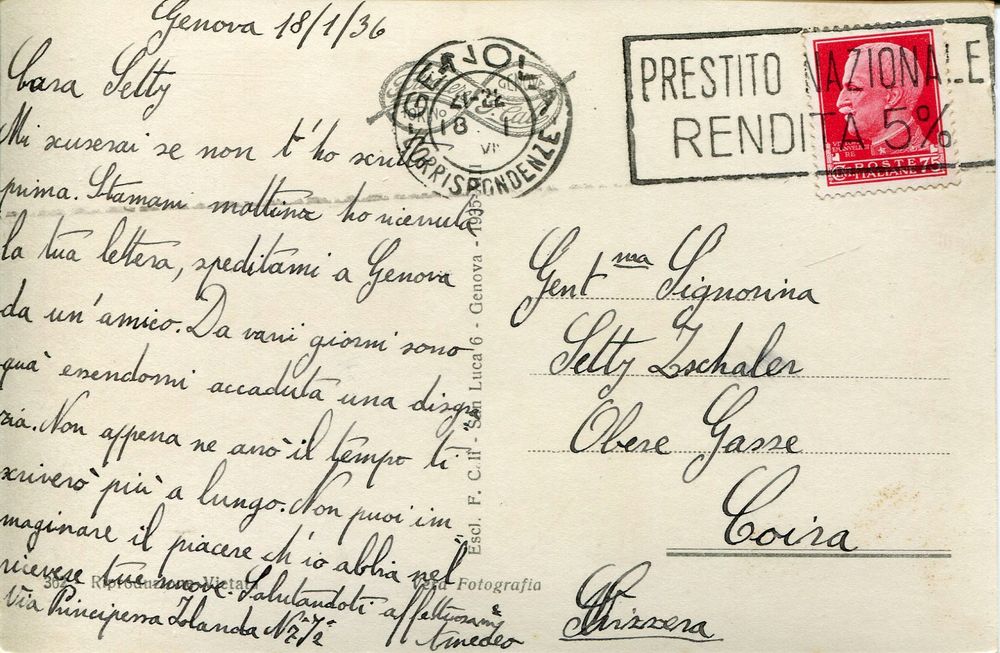 Genova 18/1/36
Cara Setty
Mi scuserai se non t'ho scritto
prima. Stamani mattina ho ricevuta
la tua lettera, speditami a Genova
da un'amico. Da vari giorni sono
quà essendomi accaduta una disgra
zia. Non appena ne avrò il tempo ti
scriverò più a lungo. Non puoi im
maginare il piacere ch'io abbia nel
ricevere tue nuove. Salutandoti affettuosam
Via Principessa Iolanda Nº
Amedeo
GENOVA
21-22
18 1
CORRISPONDENZE
PRESTITO NAZIONALE
RENDITA 5%
POSTE
ITALIANE 75
Gent ma Signorina
Setty Zschaler
Obere Gasse
Coira
Svizzera
Escl. F. C. II - San Luca 6 - Genova - 1935
362 - Riproduzione Vietata
Vera Fotografia